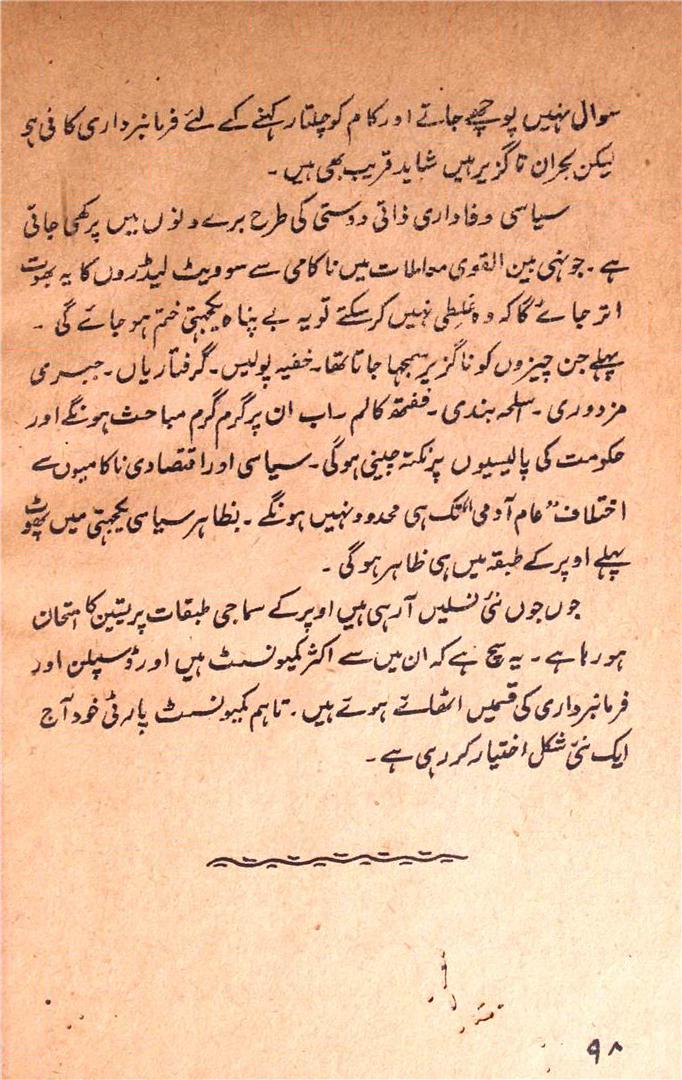 سوال نہیں پوچھے جاتے اور کام کو چلتا رکھنے کے لئے فرمانبرداری کافی ہو
لیکن بحران ناگزیر ہیں شاید قریب بھی ہیں ۔
سیاسی وفاداری ذاتی دوستی کی طرح برے دنوں میں پرکھی جاتی
ہے ۔ جونہی بین القومی معاملات میں ناکامی سے سوویٹ لیڈروں کا یہ بھوت
اتر جائے گا کہ وہ غلطی نہیں کر سکتے تو یہ بے پناہ یکجہتی ختم ہو جائے گی ۔
پہلے جن چیزوں کو ناگزیر سمجھا جاتا تھا ۔ خفیہ پولیس ۔ گرفتاریاں ۔ جبری
مزدوری ۔ اسلحہ بندی ۔ ففتھ کالم ۔ اب ان پر گرم گرم مباحث ہونگے اور
حکومت کی پالیسیوں پر نکتہ چینی ہوگی ۔ سیاسی اور اقتصادی ناکامیوں سے
اختلاف "عام آدمی" تک ہی محدود نہیں ہونگے ۔ بظاہر سیاسی یکجہتی میں پھوٹ
پہلے اوپر کے طبقہ میں ہی ظاہر ہو گی ۔
جوں جوں نئی نسلیں آ رہی ہیں اوپر کے سماجی طبقات پر یقین کا امتحان
ہو رہا ہے ۔ یہ سچ ہے کہ ان میں سے اکثر کمیونسٹ ہیں اور ڈسپلن اور
فرمانبرداری کی قسمیں اٹھائے ہوئے ہیں ۔ تاہم کمیونسٹ پارٹی خود آج
ایک نئی شکل اختیار کر رہی ہے ۔
۹۸